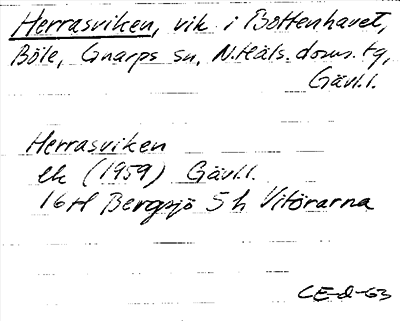 Herrasviken, vik i Bottenhavet,
Böle, Gnarps sn, N.Häls. doms. tg,
Gävl.l.
Herrasviken
ek (1959) Gävl.l.
16H Bergsjö 5h Vitörarna
CE-d-63